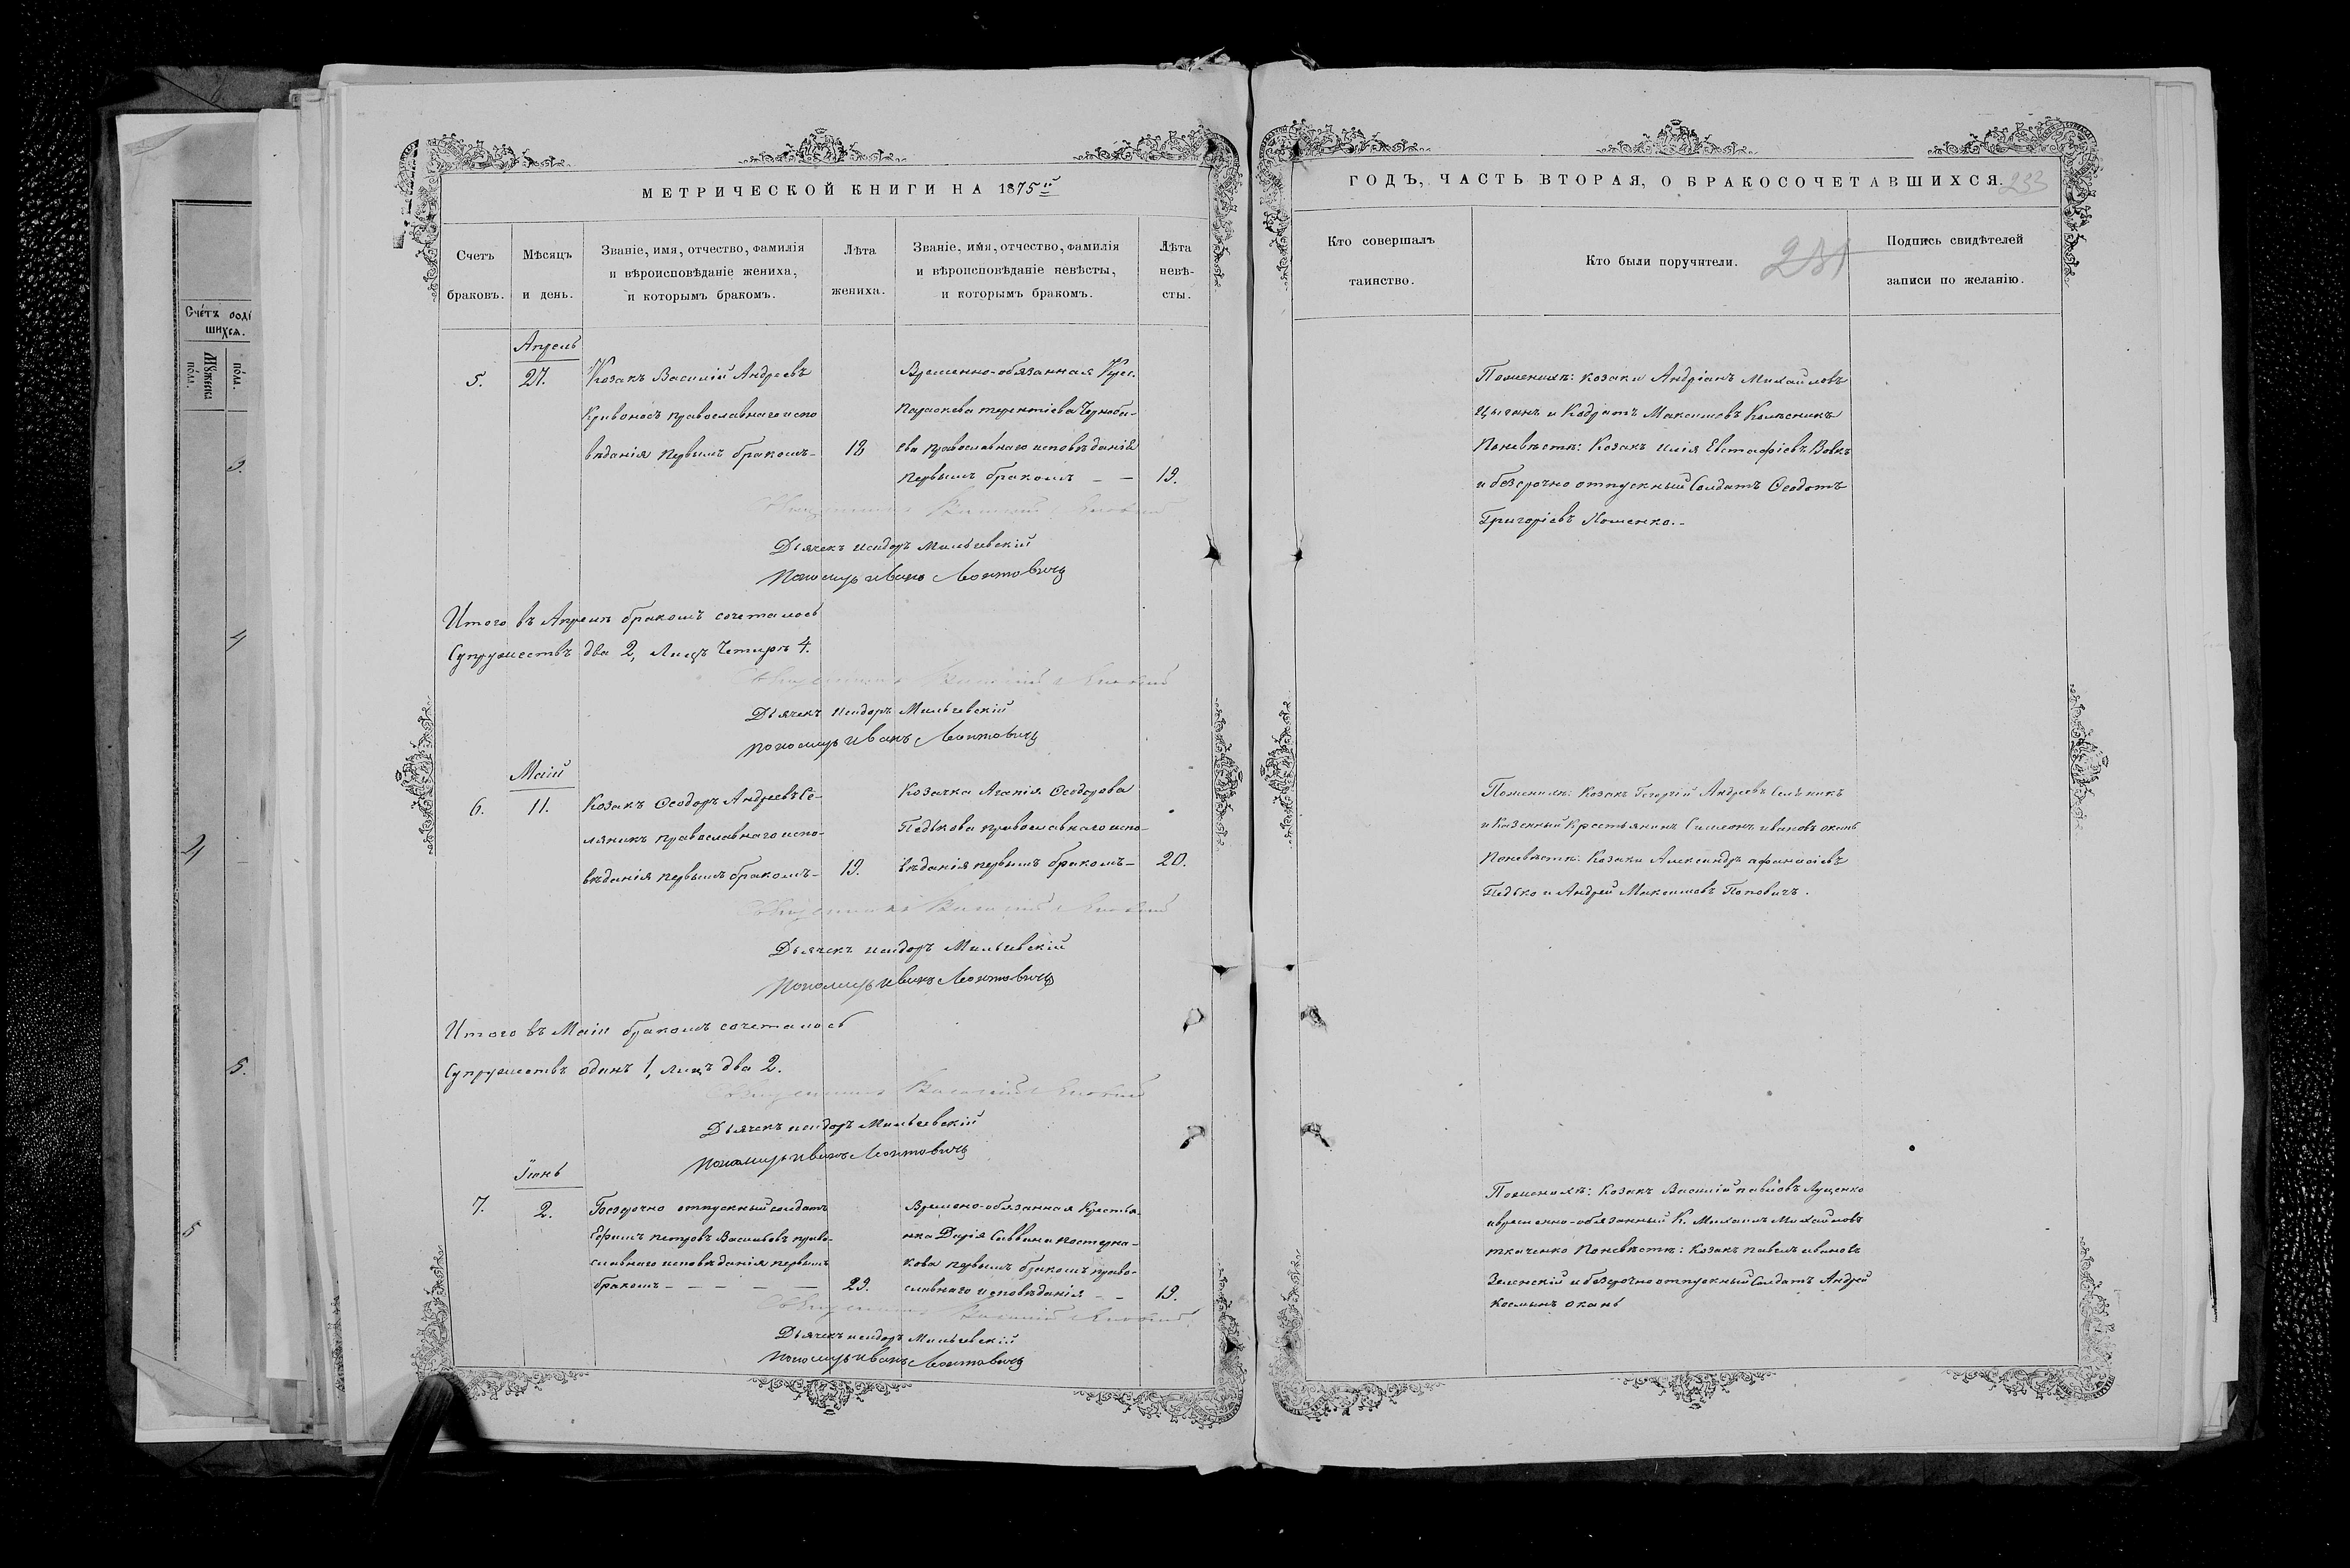 МЕТРИЧЕСКОЙ КНИГИ НА 1875й
Счетъ браковъ.
Мѣсяцъ и день.
Званіе, имя, отчество, фамилія
и вѣроисповѣданіе жениха,
и которымъ бракомъ.
Лѣта
жениха.
Званіе, имя, отчество, фамилія
и вѣроисповѣданіе невѣсты,
и которымъ бракомъ.
Лѣта
невѣ-
сты.
Апрель
5.
27.
Козакъ Василій Андреевъ
Кривоносъ православнаго испо
вѣданія первымъ бракомъ-
18
Временно-обязанная Крес.
Параскева терентіева Чорноба-
ева православнаго исповѣданія
первымъ бракомъ - -
19.
Священникъ Василій
Дьячекъ исидоръ Мильчевскій
Пономарь иванъ Леонтовичъ
Итого въ Апрелѣ бракомъ сочеталось
Супружествъ два 2, Лицъ Четыре 4.
Священникъ Василій
Дьячекъ исидоръ Мильчевскій
пономарь иванъ Леонтовичъ
Маій
6.
11.
Козакъ Ѳеодоръ Андреевъ Се-
ляникъ православнаго испо-
вѣданія первымъ бракомъ-
19.
Козачка Агапія Ѳеодорова
Педькова православнаго испо-
вѣданія первымъ бракомъ-
20.
Священникъ Василій
Дьячекъ исидоръ Мильчевскій
Пономарь иванъ Леонтовичъ
Итого въ Маіи бракомъ сочеталось
Супружествъ одинъ 1, лицъ два 2.
Священникъ Василій
Дьячекъ исидоръ Мильчевскій
Пономарь иванъ Леонтовичъ
Іюнь
7.
2.
Безсрочно отпускный солдатъ
Ефимъ петровъ Васильевъ право-
славнаго исповѣданія первымъ
бракомъ - - - -
29.
Времено-обязанная Крестья-
нка Дарія Саввина постерна-
кова первымъ бракомъ право-
славнаго исповѣданія - -
19.
Священникъ Василій
Дьячекъ исидоръ Мильчевскій
Пономарь иванъ Леонтовичъ
ГОДЪ, ЧАСТЬ ВТОРАЯ, О БРАКОСОЧЕТАВШИХСЯ.
233
Кто совершалъ
таинство.
Кто были поручители.
231
Подпись свидѣтелей
записи по желанію.
Поженихѣ: козаки Андріанъ Михайловъ
Цыганъ и Кодратъ Максимовъ Колѣсникъ
Поневѣстѣ: Козакъ илія Евстафіевъ Вовкъ
и безсрочно отпускный Солдатъ Ѳеодотъ
Григоріевъ Хоменко.-
Поженихѣ: Козакъ Георгій Андреевъ
и Казенный Крестьянинъ Симеонъ ивановъ окань
Поневѣстѣ: Козаки Александръ афанасіевъ
Педько и Андрей Максимовъ Поповичъ.
Поженихѣ: Козакъ Василій павловъ Луценко
и временно-обязанный К. Михаилъ Михайловъ
ткаченко Поневѣстѣ: Козакъ павелъ ивановъ
Зеленскій и безсрочно отпускный Солдатъ Андрей
Косминъ окань
Счетъ роди
шихся.
Мужеска
пола.
пола.
3.
4
4
5.
5